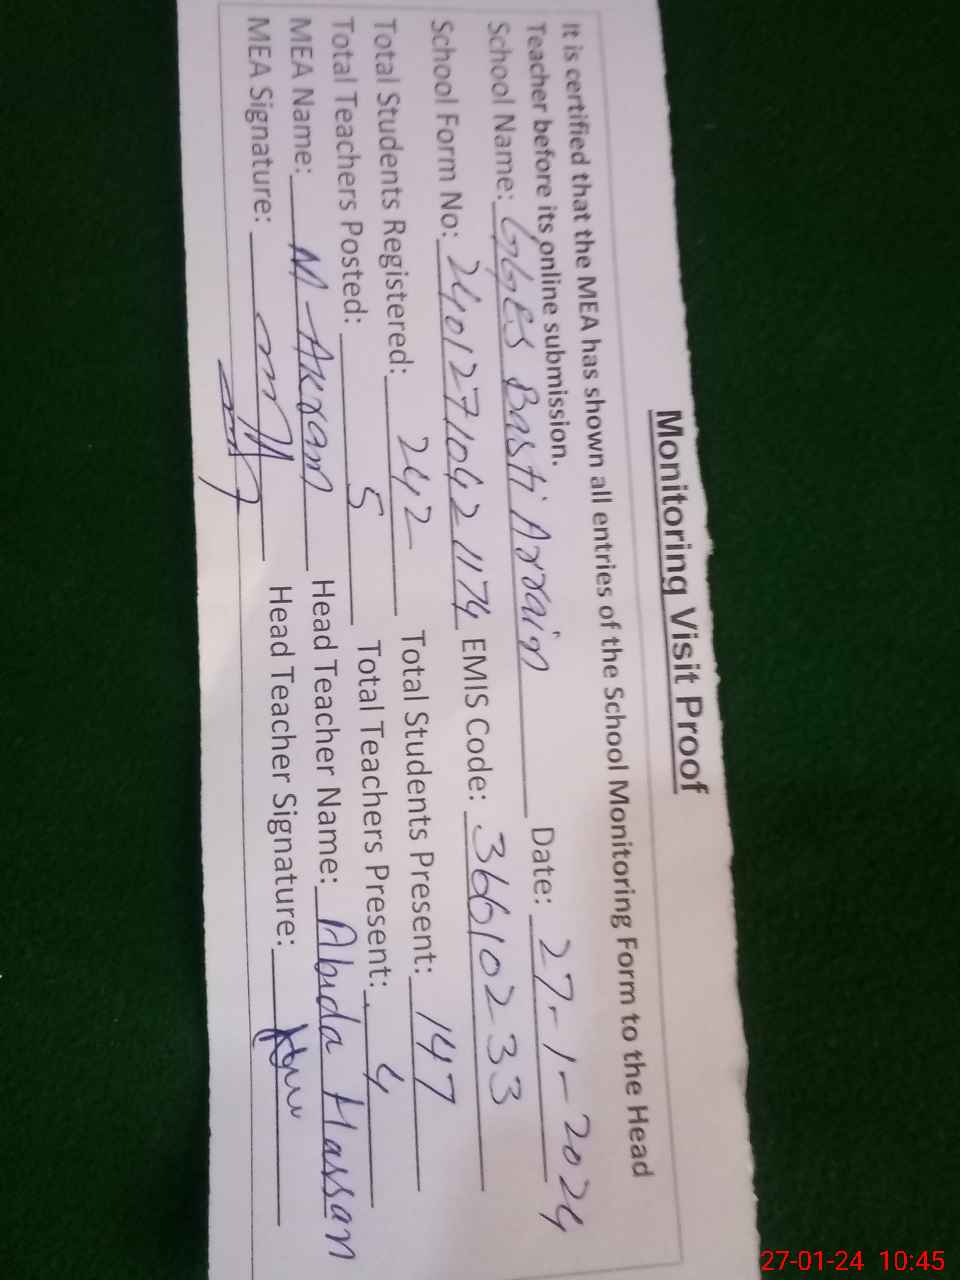 Monitoring Visit Proof
It is certified that the MEA has shown all entries of the School Monitoring Form to the Head
Teacher before its online submission.
School Name: GGES Basti Arrain Date: 27-1-2024
School Form No: 24012710421174 EMIS Code: 36610233
Total Students Registered: 242 Total Students Present: 147
Total Teachers Posted: 5 Total Teachers Present: 4
MEA Name: M-Akram Head Teacher Name: Abida Hassan
MEA Signature: Head Teacher Signature:
27-01-24 10:45